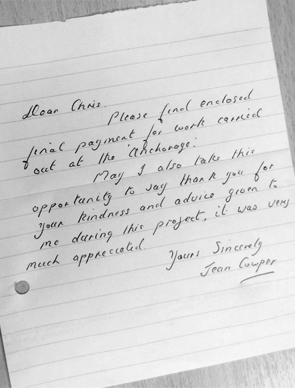 Dear Chris.
Please find enclosed
final payment for work carried
out at the 'Anchorage'.
May I also take this
opportunity to say thank you for
your kindness and advice given to
me during this project, it was very
much appreciated.
Yours Sincerely
Jean Cowper